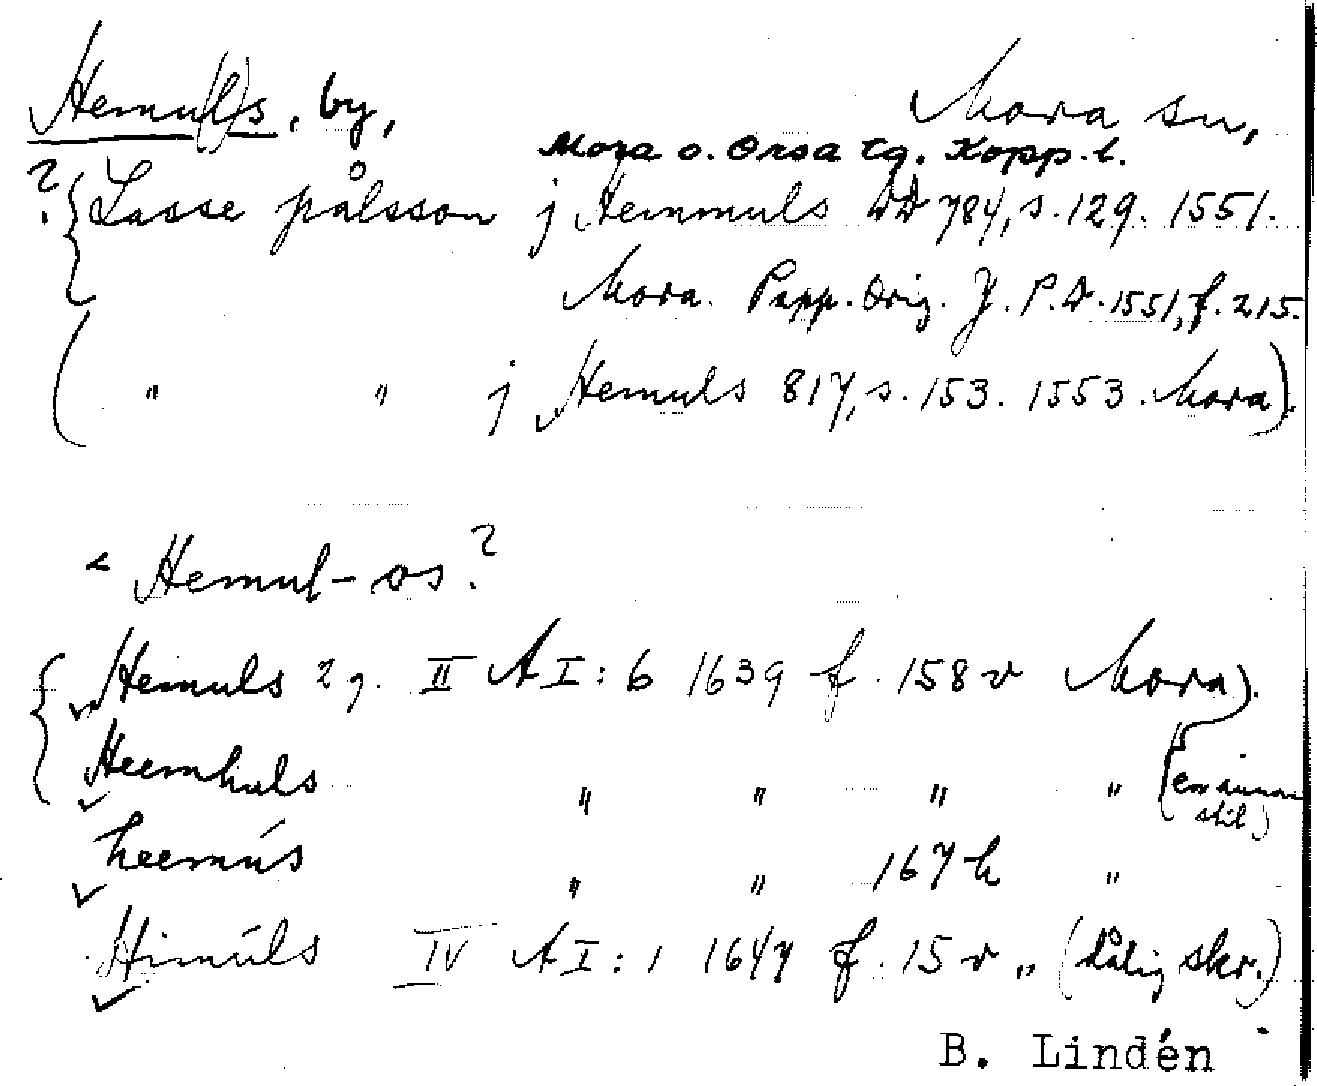 Hemu(l)s, by, Mora sn,
Mora o. Orsa tg. Kopp. l.
? { Lasse pålsson j Hemmuls DD 784, s. 129. 1551.
Mora. Papp. Orig. J. P. D. 1551, f. 215.
( " " j Hemuls 817, s. 153. 1553. Mora)
< Hemul-os?
{ Hemuls 2 g. II A I: 6 1639 f. 158 v Mora).
Heemhuls " " " " (en annan
stil)
heemús " " 167 h "
Himúls IV A I: 1 1647 f. 15 v " (dålig skr.)
B. Lindén